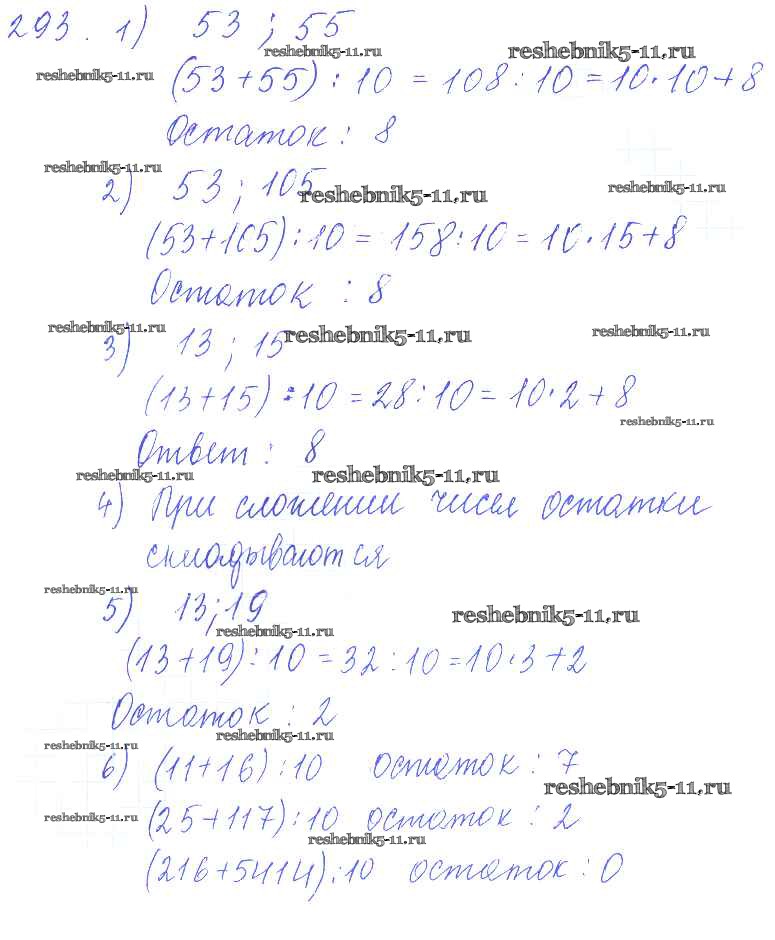 293. 1) 53 ; 55
reshebnik5-11.ru reshebnik5-11.ru
reshebnik5-11.ru (53+55) : 10 = 108 : 10 = 10·10+8
Остаток : 8
reshebnik5-11.ru
2) 53 ; 105
reshebnik5-11.ru reshebnik5-11.ru
(53+105) : 10 = 158 : 10 = 10·15+8
Остаток : 8
reshebnik5-11.ru reshebnik5-11.ru reshebnik5-11.ru
3) 13 ; 15
(13+15) : 10 = 28 : 10 = 10·2+8
reshebnik5-11.ru
Ответ : 8
reshebnik5-11.ru reshebnik5-11.ru
4) При сложении чисел остатки
складываются
reshebnik5-11.ru
5) 13 ; 19
reshebnik5-11.ru
reshebnik5-11.ru
(13+19) : 10 = 32 : 10 = 10·3+2
Остаток : 2
reshebnik5-11.ru
reshebnik5-11.ru
6) (11+16) : 10 остаток : 7
reshebnik5-11.ru
reshebnik5-11.ru (25+117) : 10 остаток : 2
reshebnik5-11.ru
(216+5414) : 10 остаток : 0